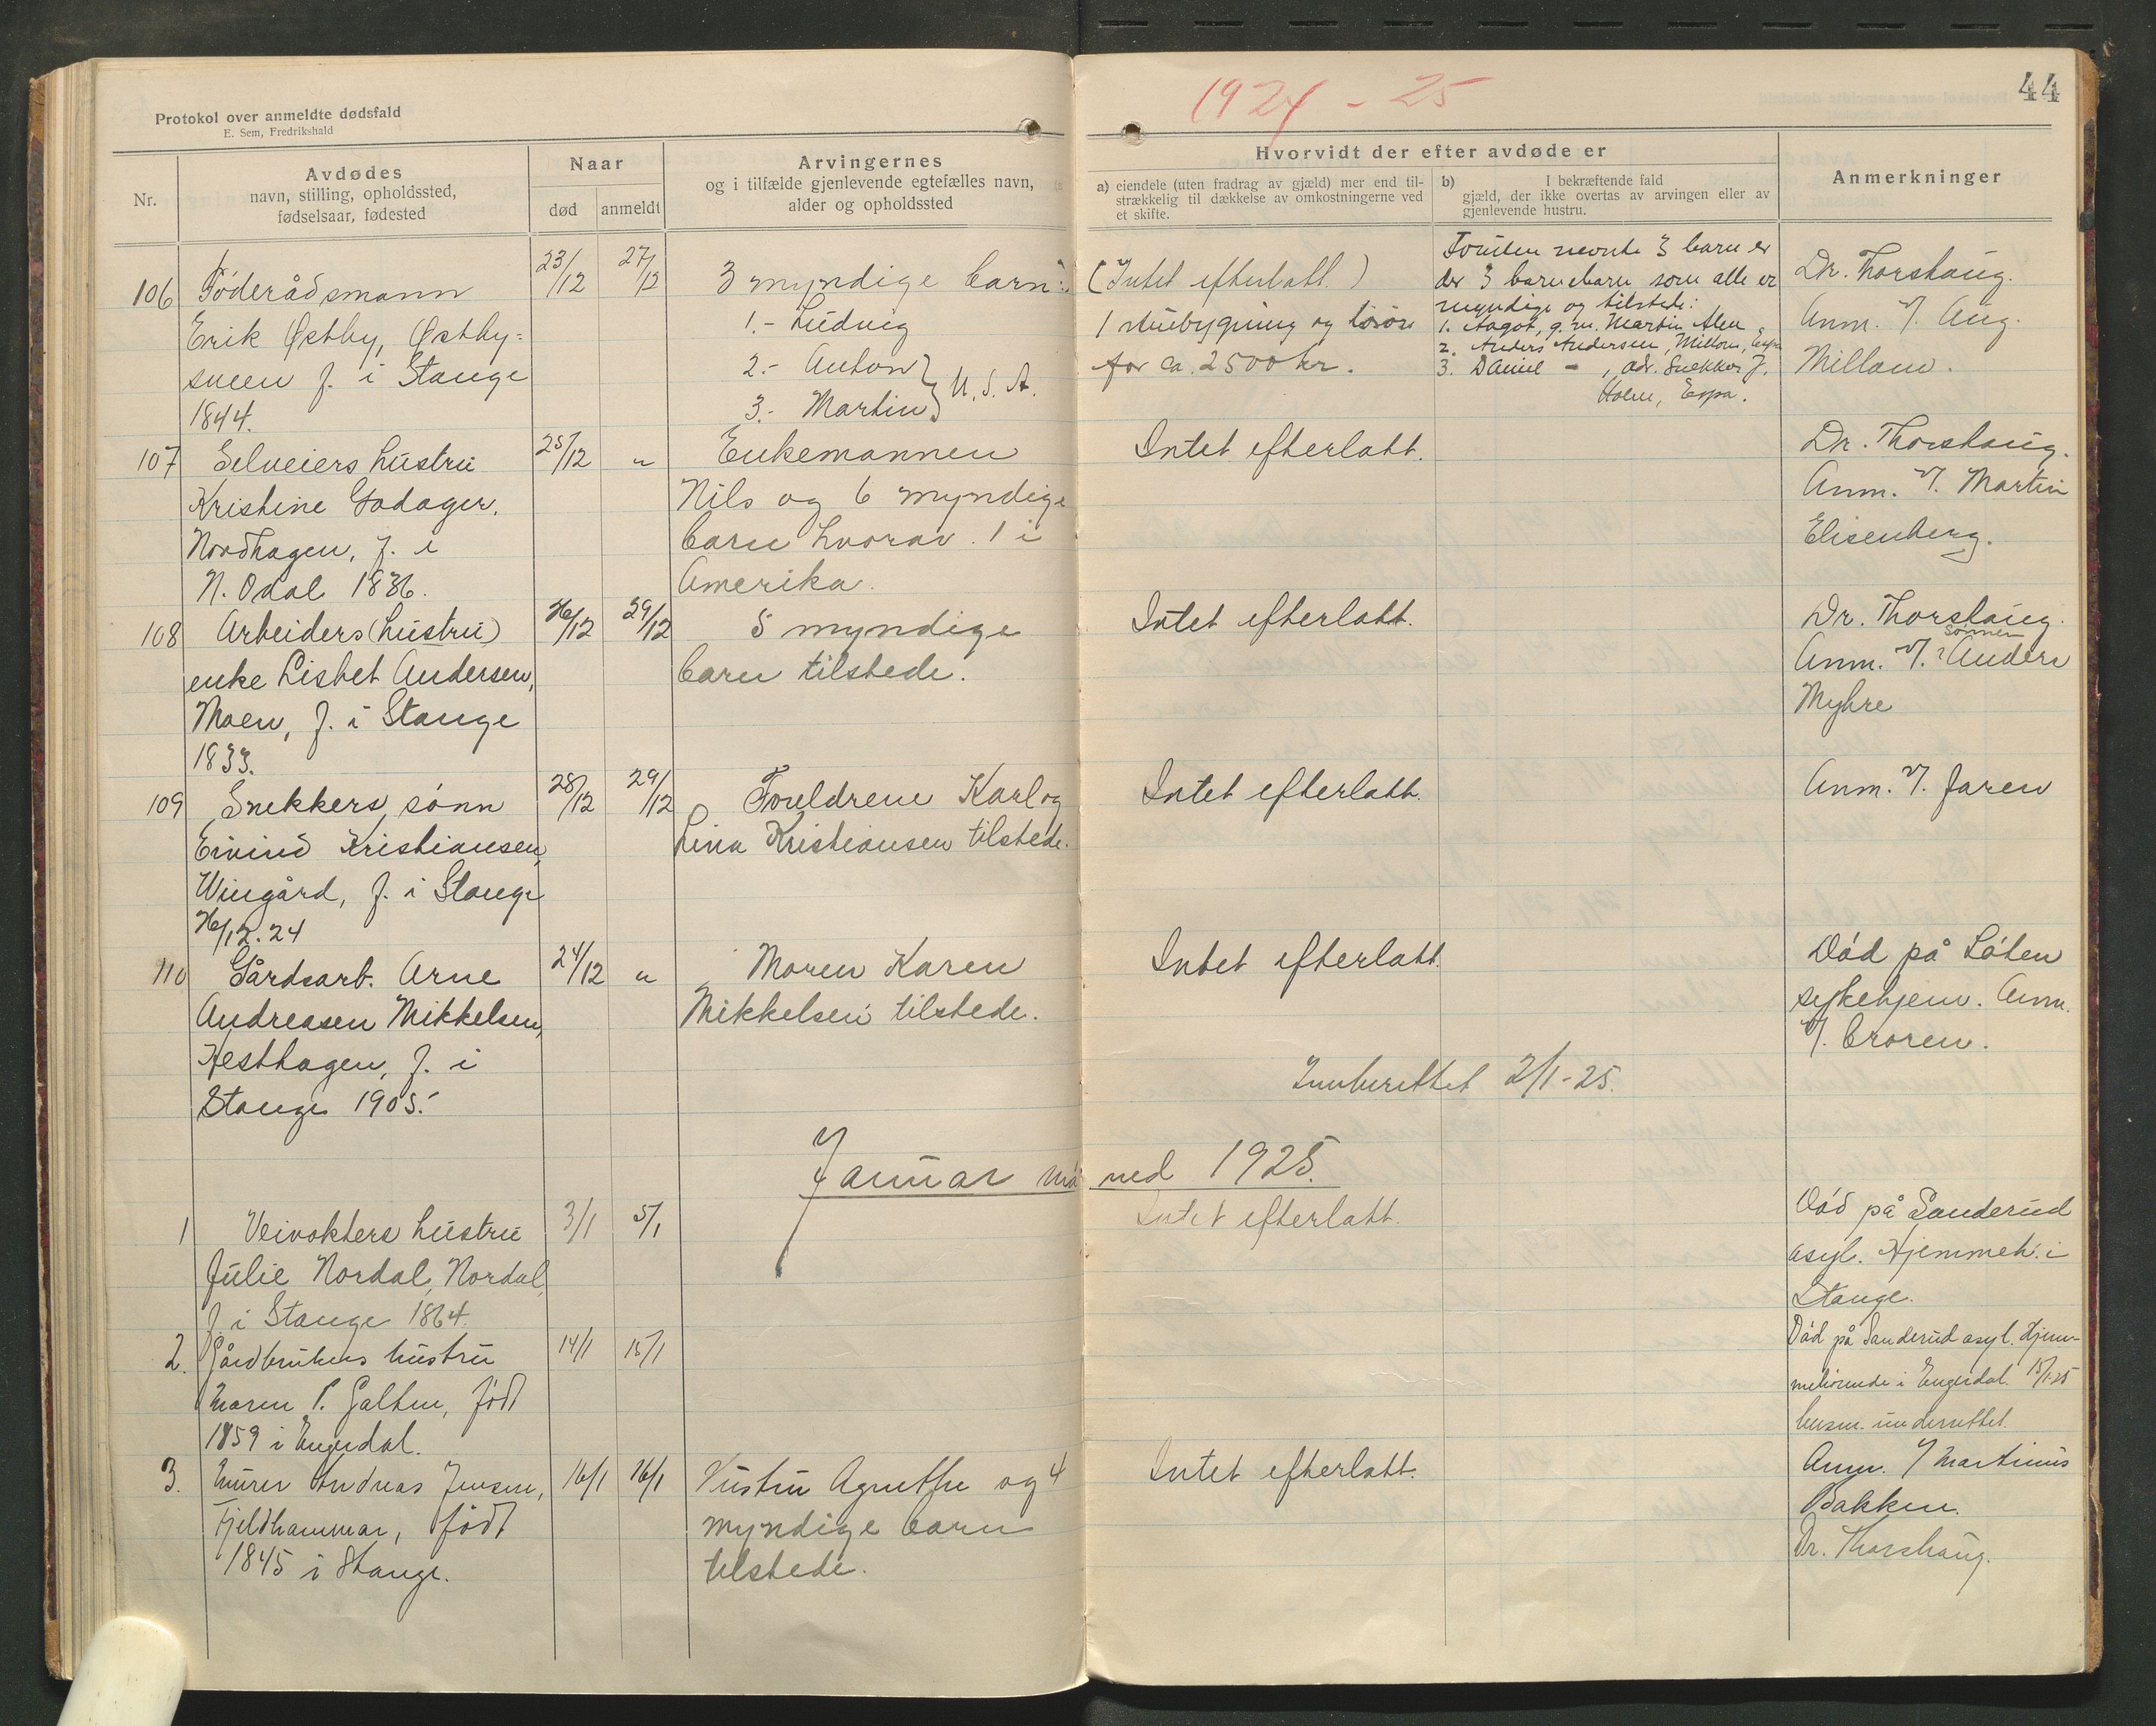 Protokol over anmeldte dødsfald
E. Sem, Fredrikshald
1924 - 25
44
Nr.
Avdødes
navn, stilling, opholdssted,
fødselsaar, fødested
Naar
død
anmeldt
Arvingernes
og i tilfælde gjenlevende egtefælles navn,
alder og opholdssted
Hvorvidt der efter avdøde er
a) eiendele (uten fradrag av gjæld) mer end til-
strækkelig til dækkelse av omkostningerne ved
et skifte.
b) I bekræftende fald
gjæld, der ikke overtas av arvingen eller av
gjenlevende hustru.
Anmerkninger
106
Föderådsmann
Erik Østby, Østby-
sveen f. i Stange
1844.
23/12
27/12
3 myndige barn:
1.- Ludvig
2.- Anton
3.- Martin
U. S. A.
(Intet efterlatt.)
1 stuebygning og lösöre
for ca. 2500 kr.
Foruten nevnte 3 barn er
der 3 barnebarn som alle er
myndige og tilstede:
1. Aagot, g. m. Martin Alm
2. Anders Andersen, Millom, Espa
3. Daniel - , adr. Snekker J.
Holm, Espa.
Dr. Thorshaug.
Anm. v/. Aug.
Millom.
107
Selveiers hustru
Kristine Godager,
Nordhagen, f. i
N. Odal 1836.
25/12
"
Enkemannen
Nils og 6 myndige
barn hvorav 1 i
Amerika.
Intet efterlatt.
Dr. Thorshaug.
Anm. v/. Martin
Elisenberg.
108
Arbeiders (hustru)
enke Lisbet Andersen,
Moen, f. i Stange
1833.
26/12
29/12
5 myndige
barn tilstede.
Intet efterlatt.
Dr. Thorshaug.
sønnen
Anm. v/. Anders
Myhre
109
Snekkers sönn
Eivind Kristiansen,
Wingård, f. i Stange
26/12.24
28/12
29/12
Foreldrene Karl og
Lina Kristiansen tilstede.
Intet efterlatt.
Anm. v/. faren
110
Gårdsarb. Arne
Andreasen Mikkelsen,
Hesthagen, f. i
Stange 1905.
24/12
"
Moren Karen
Mikkelsen tilstede.
Intet efterlatt.
Död på Löten
sykehjem. Anm.
v/. broren.
Innberettet 2/1-25.
Januar måned 1925.
1
Veivokters hustru
Julie Nordal, Nordal,
f. i Stange 1864.
3/1
5/1
Intet efterlatt.
Död på Sanderud
asyl. Hjemmeh. i
Stange.
2.
Gårdbrukers hustru
Maren P. Galten, född
1859 i Engerdal.
14/1
15/1
Död på Sanderud asyl. Hjem-
mehörende i Engerdal. 15/1-25
lensm. underrettet.
3.
Murer Andreas Jensen,
Fjeldhammar, född
1845 i Stange.
16/1
16/1
Hustru Agnethe og 4
myndige barn
tilstede.
Intet efterlatt.
Anm. v/ Martinius
Bakken.
Dr. Thorshaug.